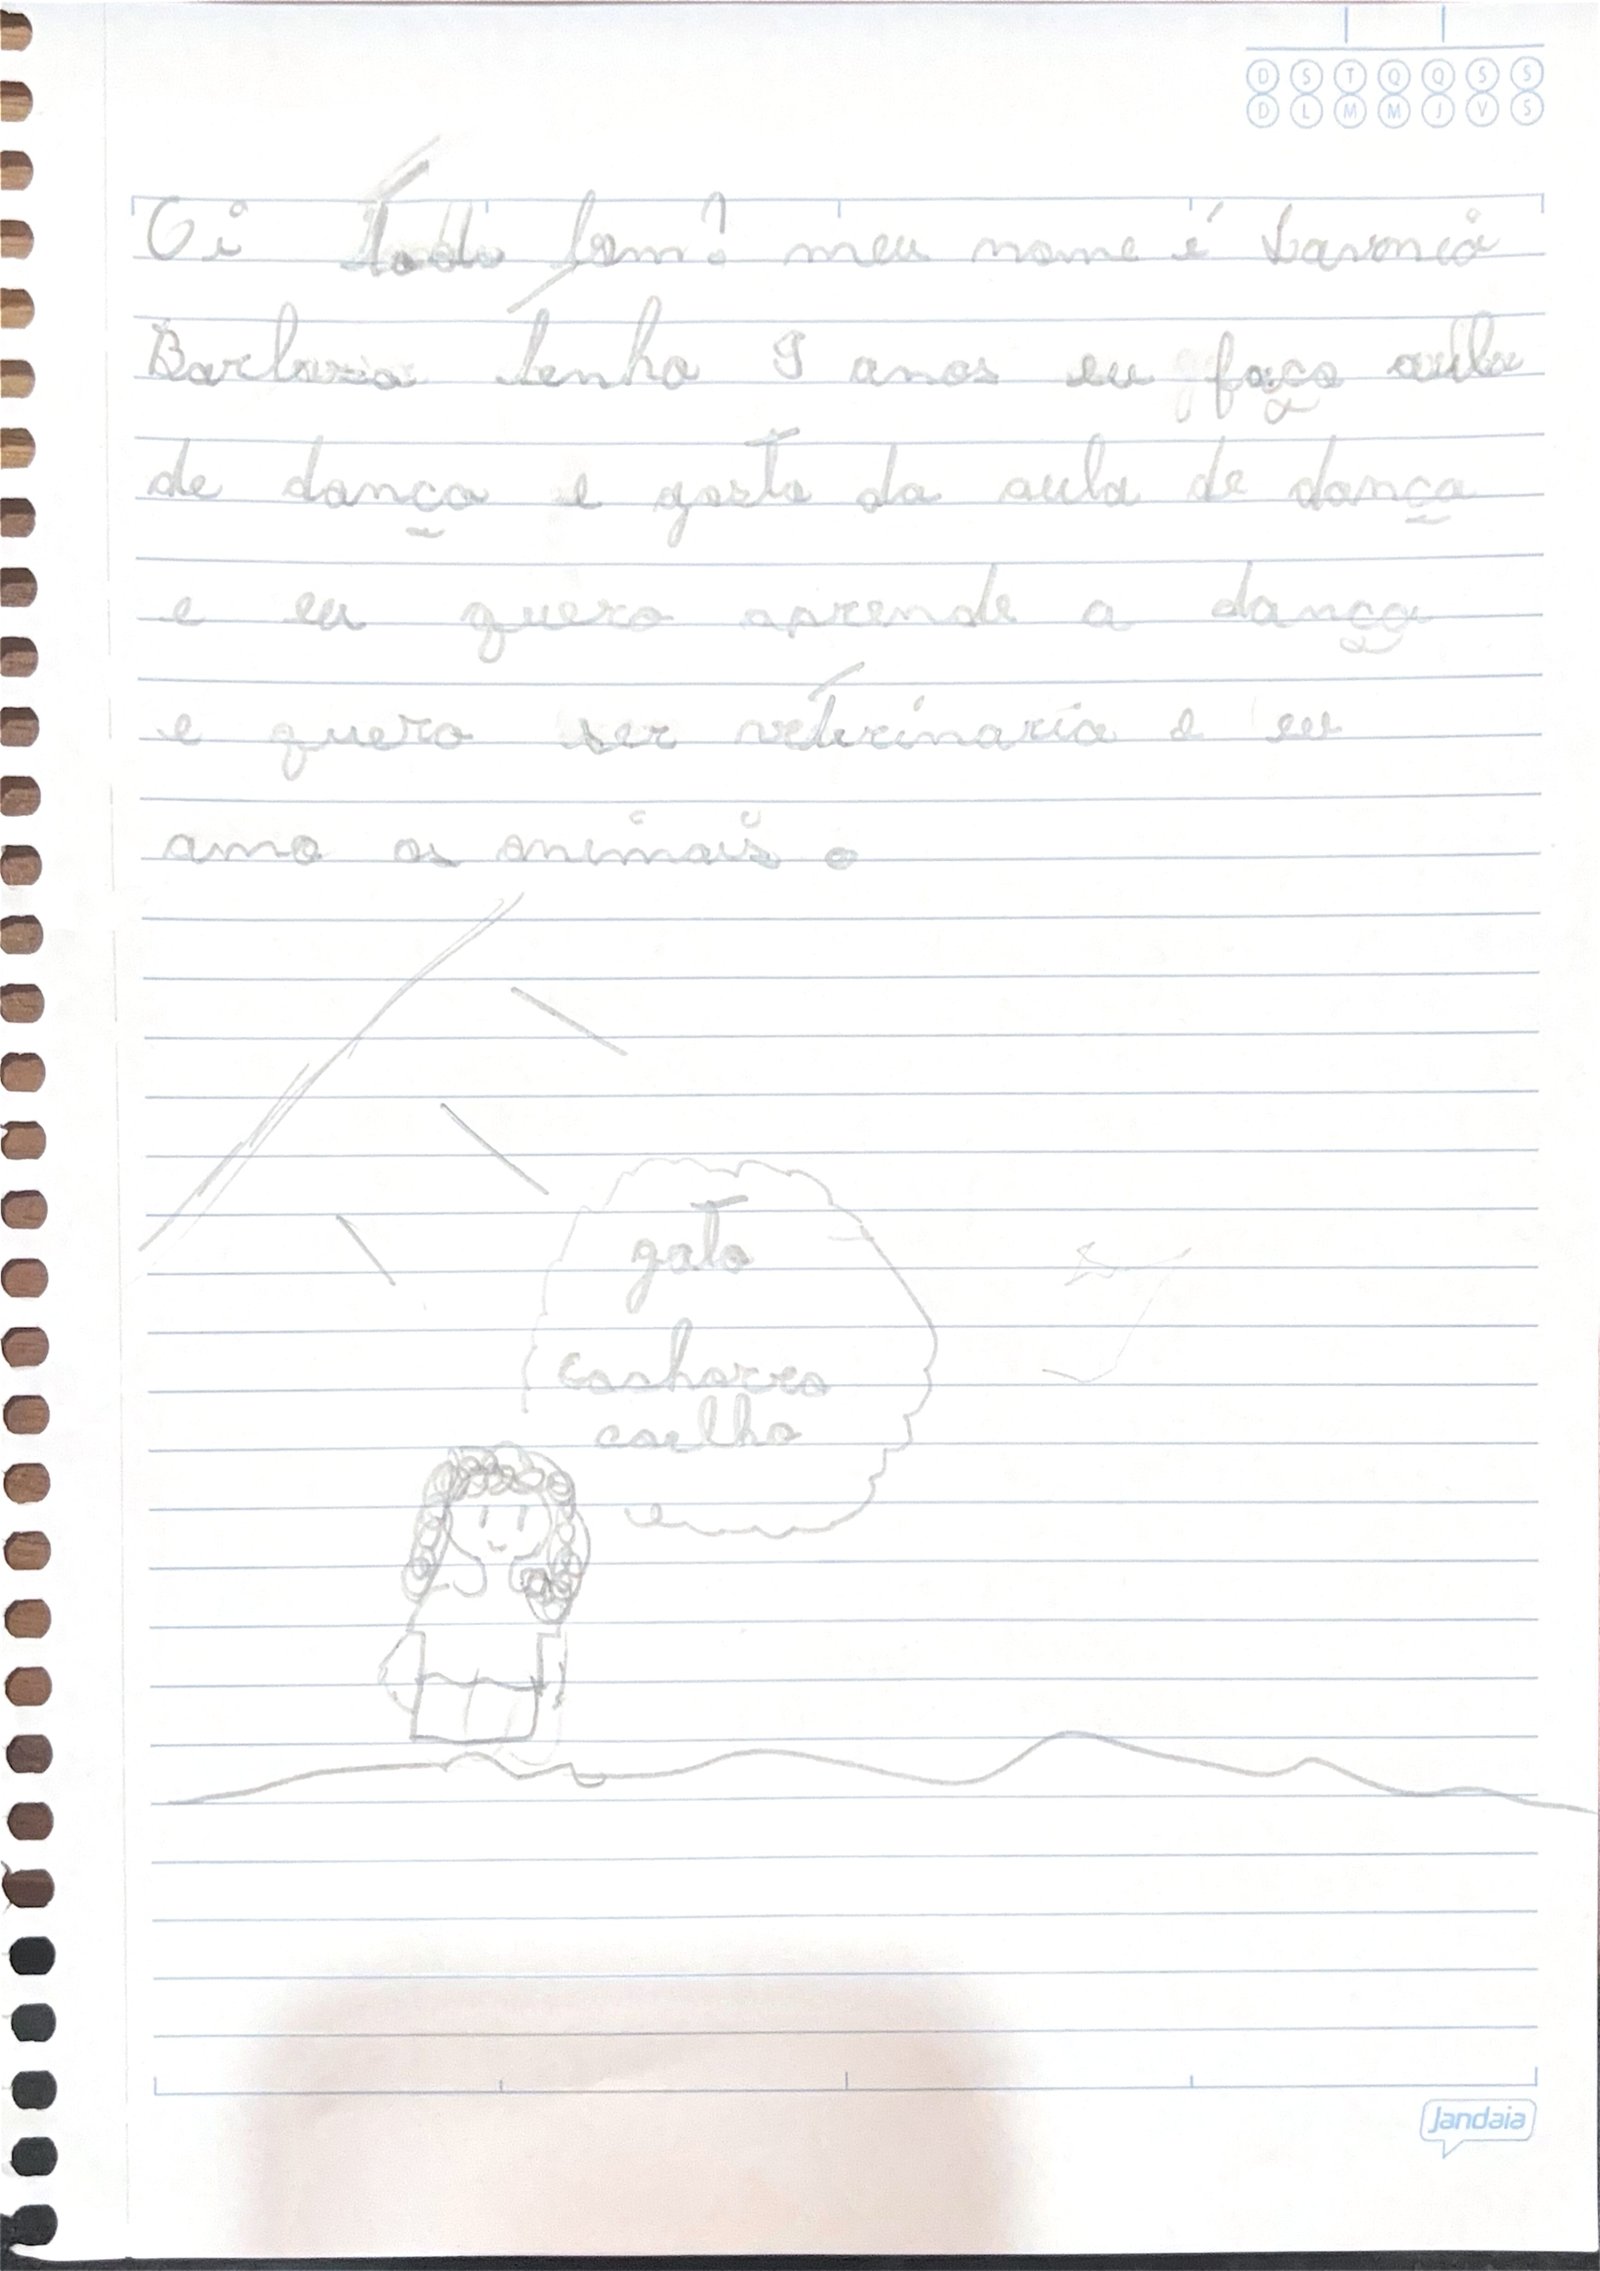 D S T Q Q S S
D L M M J V S
Oi tudo bem? meu nome é
Barboza tenho 9 anos eu faço aula
de dança e gosto da aula de dança
e eu quero aprende a dança
e quero ser veterinaria e eu
amo os animais.
gato
cachorro
coelho
Jandaia